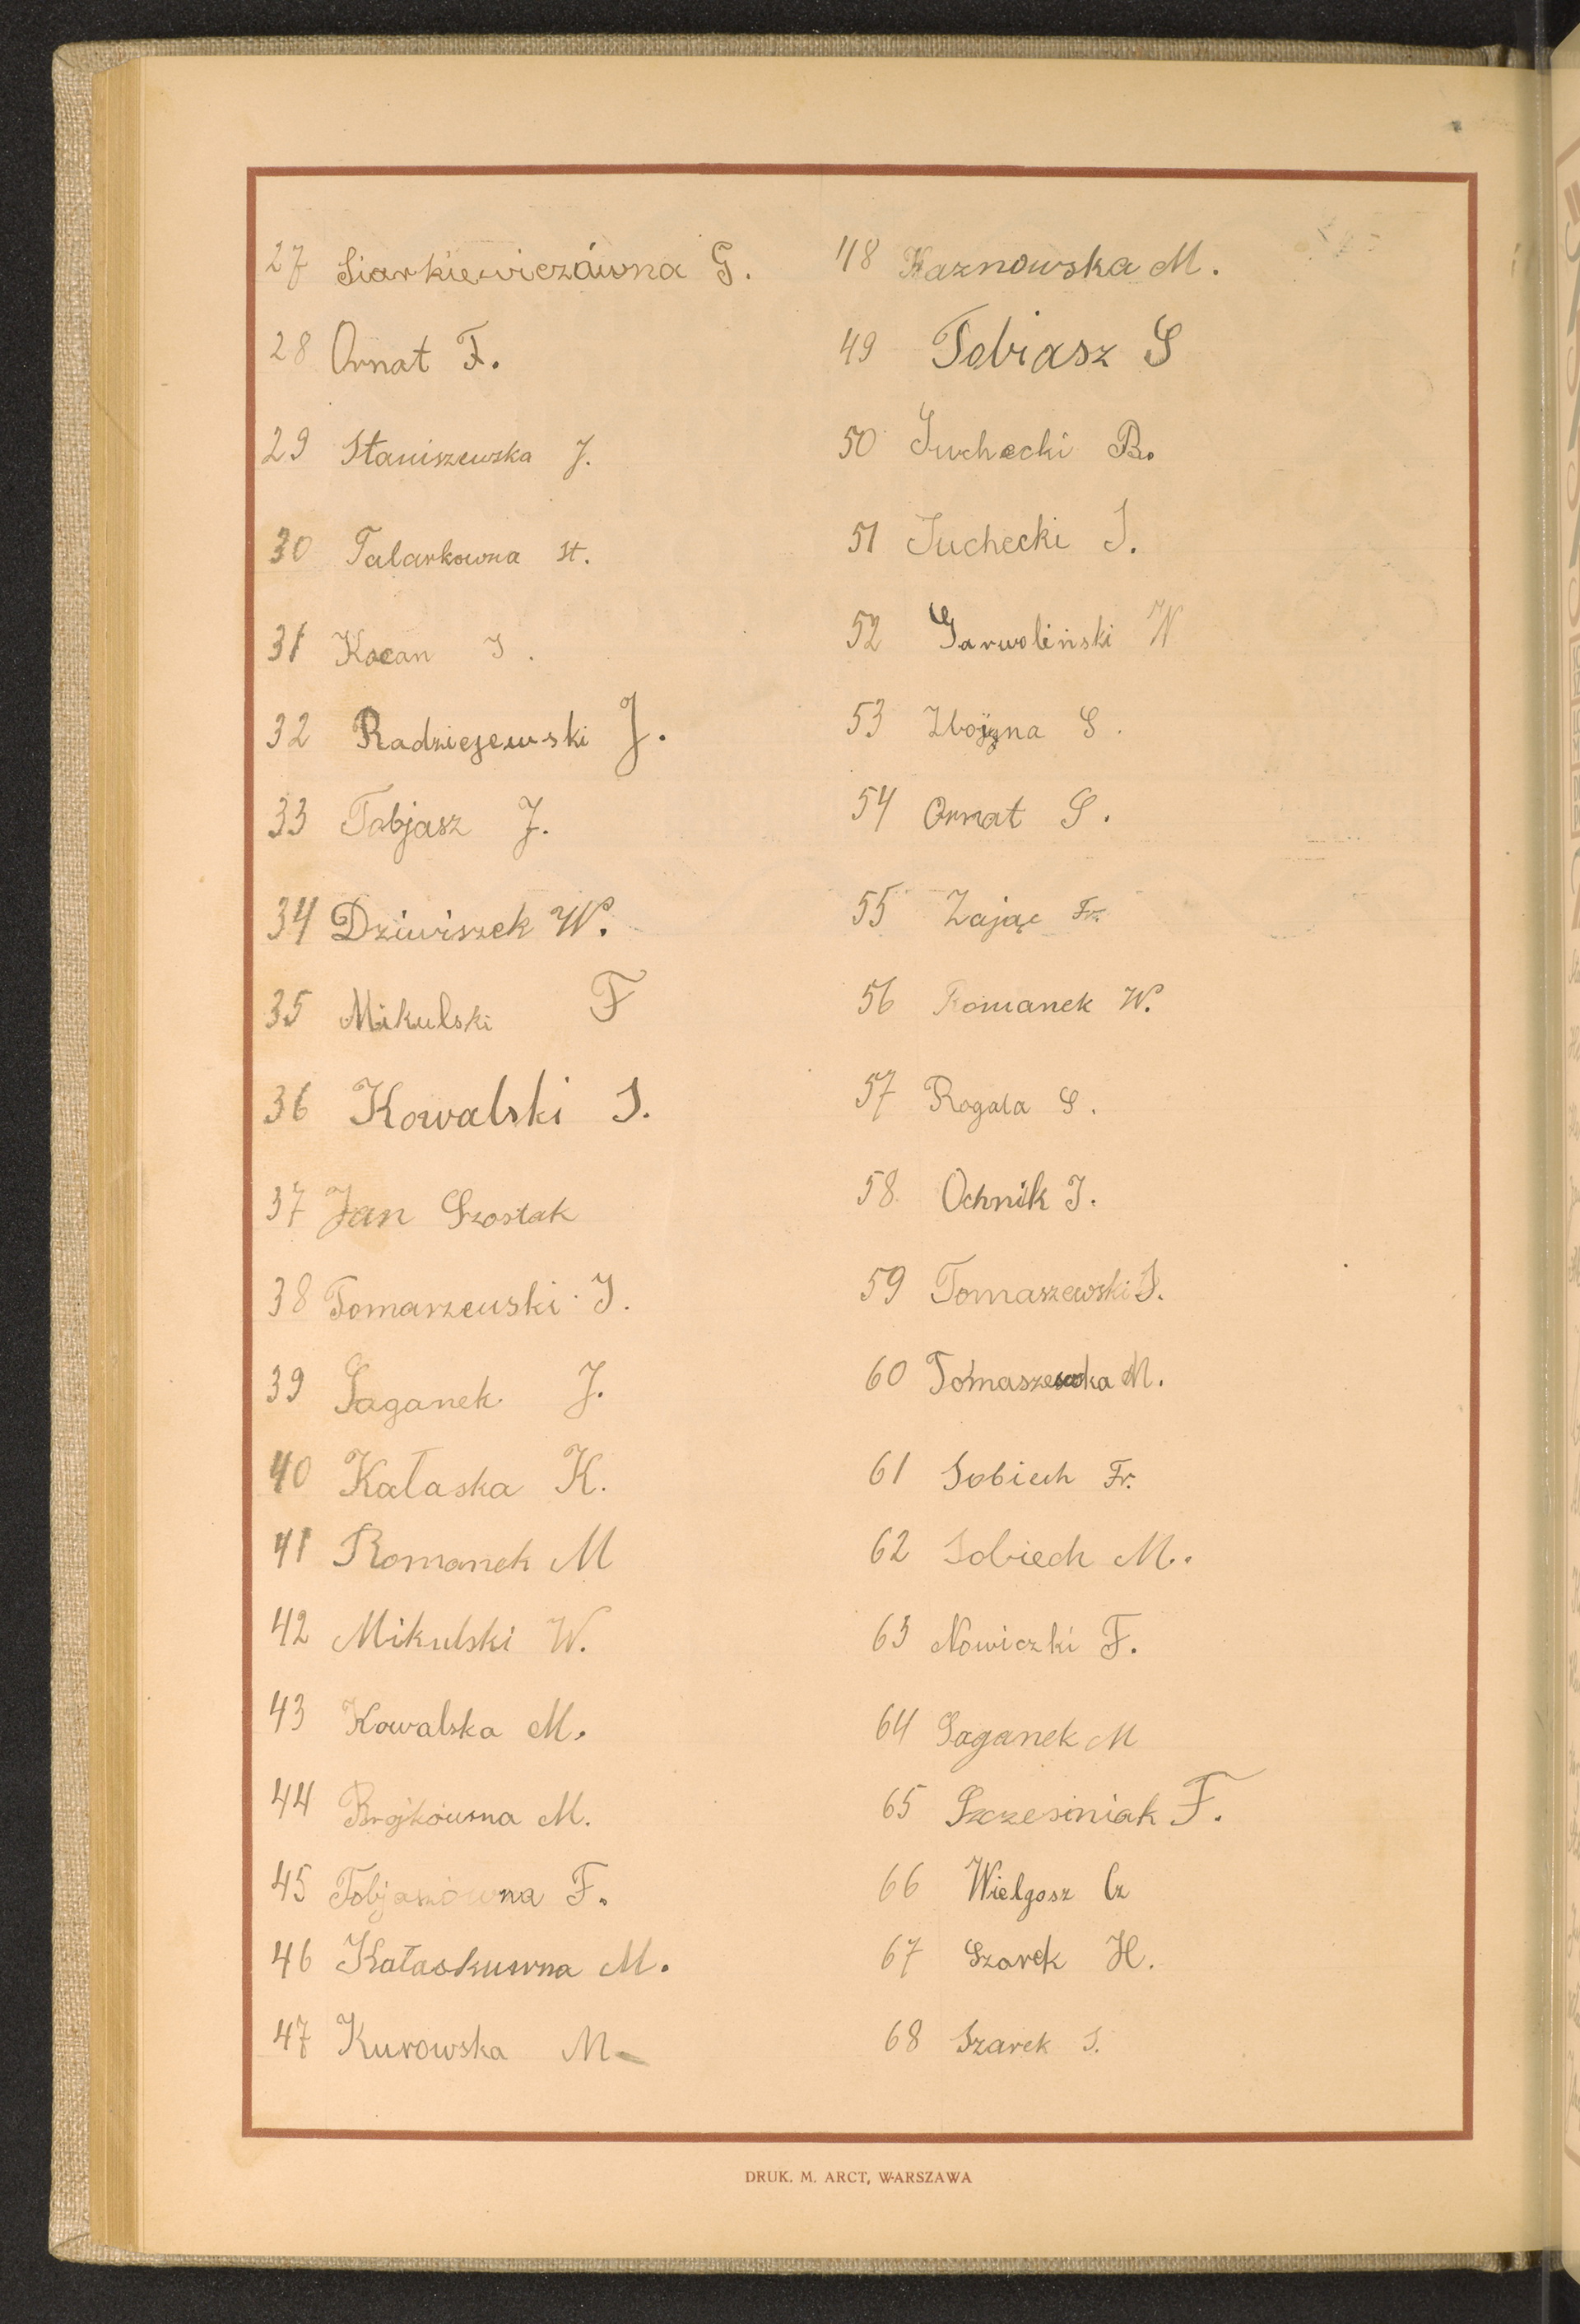 27 Siarkiewiczówna G.
28 Ornat F.
29 Staniszewska J.
30 Talarkowna St.
31 Kocan J.
32 Radziejewski J.
33 Tobjasz J.
34 Dziwiszek W.
35 Mikulski F
36 Kowalski S.
37 Jan Szostak
38 Tomaszewski J.
39 Saganek J.
40 Kałaska K.
41 Romanek M
42 Mikulski W.
43 Kowalska M.
44 M.
45 Tobjaszówna F.
46 Kałaskuwna M.
47 Kurowska M
48 Kaznowska M.
49 Tobiasz S
50 Suchecki B.
51 Suchecki J.
52 Garwoliński W
53 S.
54 Ornat S.
55 Zając Fr.
56 Romanek W.
57 Rogala S.
58 Ochnik J.
59 Tomaszewski S.
60 Tomaszewska M.
61 Sobiech Fr.
62 Sobiech M.
63 Nowiczki F.
64 Saganek M
65 Szczesiniak F.
66 Wielgosz Cz
67 Szarek H.
68 Szarek S.
DRUK. M. ARCT, WARSZAWA